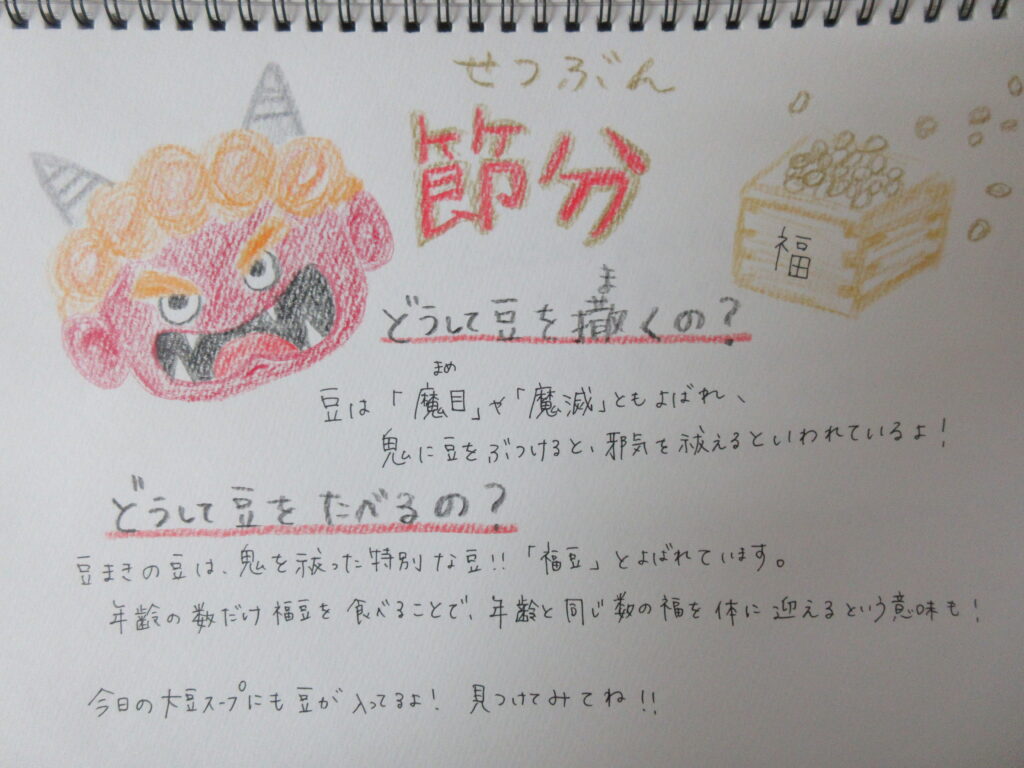 せつぶん
節分
福
ま
どうして豆を撒くの？
まめ
豆は「魔目」や「魔滅」ともよばれ、
鬼に豆をぶつけると、邪気を祓えるといわれているよ！
どうして豆をたべるの？
豆まきの豆は、鬼を祓った特別な豆!!「福豆」とよばれています。
年齢の数だけ福豆を食べることで、年齢と同じ数の福を体に迎えるという意味も！
今日の大豆スープにも豆が入ってるよ！ 見つけてみてね!!